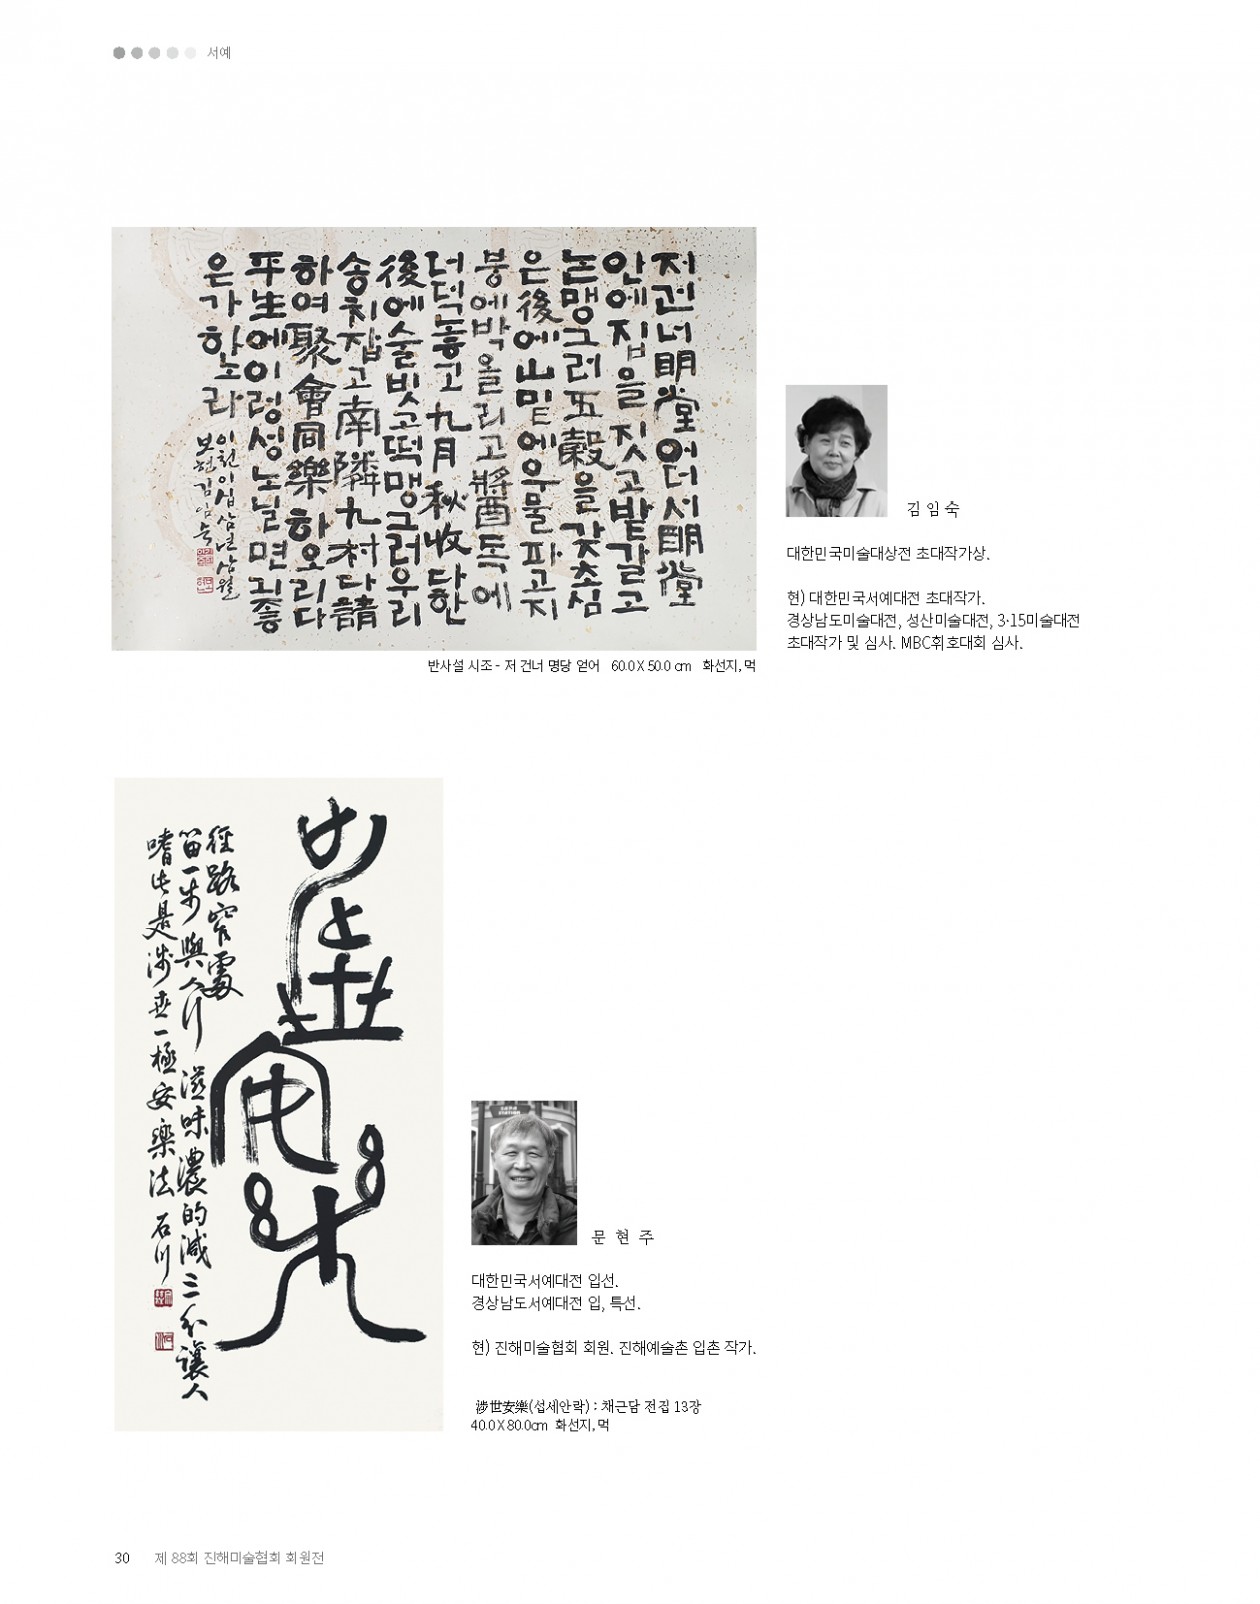 서예
저건너明堂어더서明堂
안에집을짓고밭갈고
논맹그러五穀을갖초심
은後에山밑에우물파고지
붕에박올리고醬독에
더덕놓고九月秋收다한
後에술빗고떡맹그러우리
송치잡고南隣九村다請
하여聚會同樂하오리다
平生에이렁성노닐면긔좋
은가하노라
이천이십삼년삼월
보현김임숙
반사설 시조 - 저 건너 명당 얻어 60.0 X 50.0 cm 화선지, 먹
김 임 숙
대한민국미술대상전 초대작가상.
현) 대한민국서예대전 초대작가.
경상남도미술대전, 성산미술대전, 3·15미술대전
초대작가 및 심사. MBC휘호대회 심사.
涉世安樂
徑路窄處
留一步與人行 滋味濃的減三分讓人
嗜此是涉世一極安樂法 石川
문 현 주
대한민국서예대전 입선.
경상남도서예대전 입, 특선.
현) 진해미술협회 회원. 진해예술촌 입촌 작가.
涉世安樂(섭세안락) : 채근담 전집 13장
40.0 X 80.0cm 화선지, 먹
30 제 88회 진해미술협회 회원전